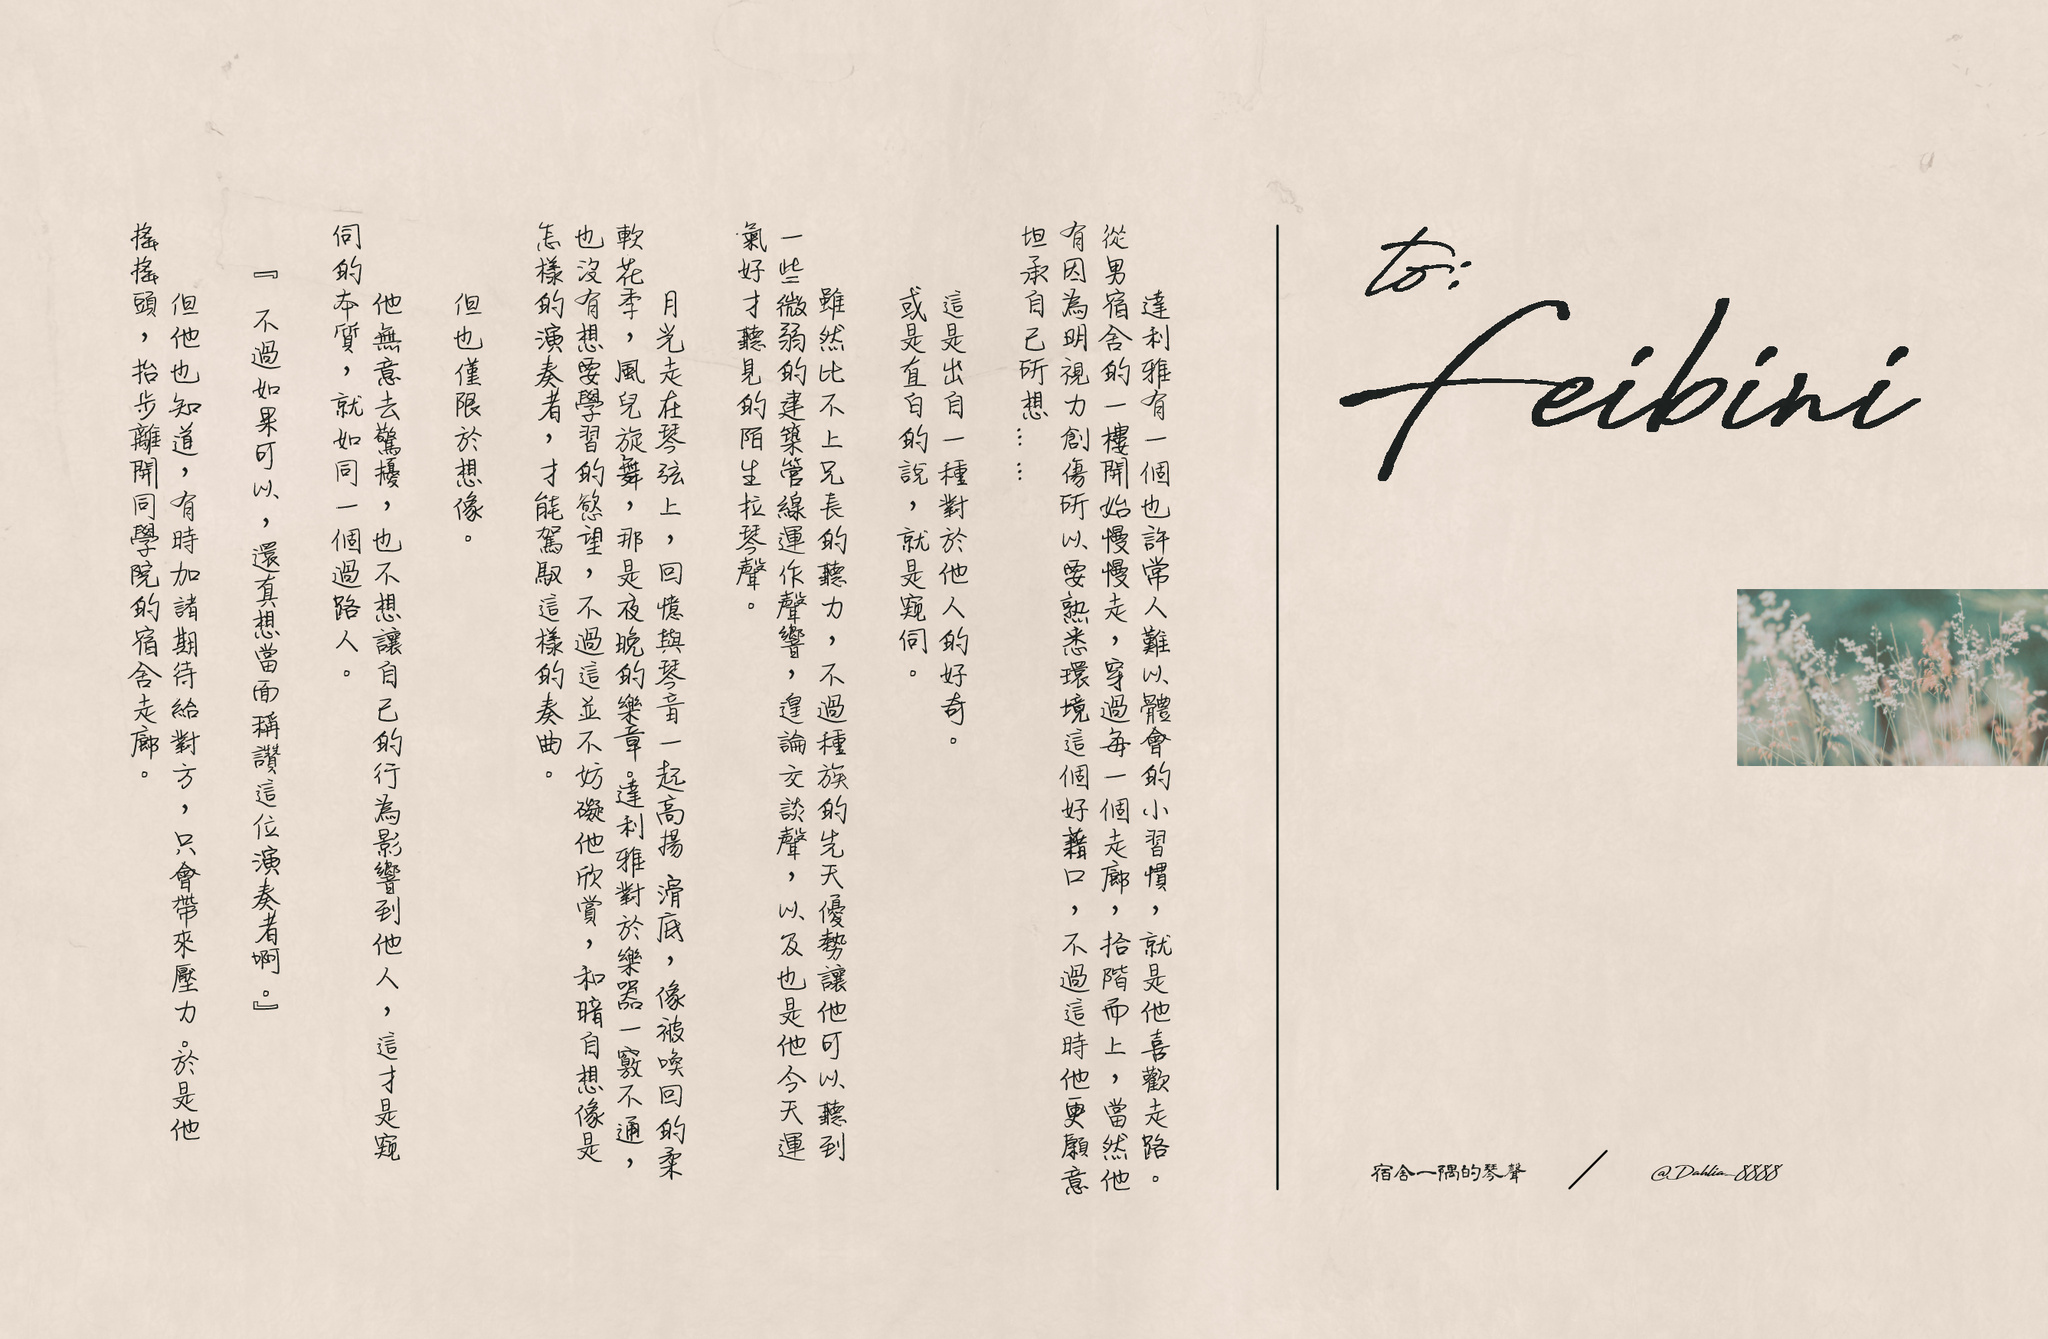 to:
feibini
宿舍一隅的琴聲 / @Dahlia_8888
達利雅有一個也許常人難以體會的小習慣，就是他喜歡走路。
從男宿舍的一樓開始慢慢走，穿過每一個走廊，拾階而上，當然他
有因為明視力創傷所以要熟悉環境這個好藉口，不過這時他更願意
坦承自己所想……
這是出自一種對於他人的好奇。
或是直白的說，就是窺伺。
雖然比不上兄長的聽力，不過種族的先天優勢讓他可以聽到
一些微弱的建築管線運作聲響，遑論交談聲，以及也是他今天運
氣好才聽見的陌生拉琴聲。
月光走在琴弦上，回憶與琴音一起高揚 滑底，像被喚回的柔
軟花季，風兒旋舞，那是夜晚的樂章。達利雅對於樂器一竅不通，
也沒有想要學習的慾望，不過這並不妨礙他欣賞，和暗自想像是
怎樣的演奏者，才能駕馭這樣的奏曲。
但也僅限於想像。
他無意去驚擾，也不想讓自己的行為影響到他人，這才是窺
伺的本質，就如同一個過路人。
『不過如果可以，還真想當面稱讚這位演奏者啊。』
但他也知道，有時加諸期待給對方，只會帶來壓力。於是他
搖搖頭，抬步離開同學院的宿舍走廊。